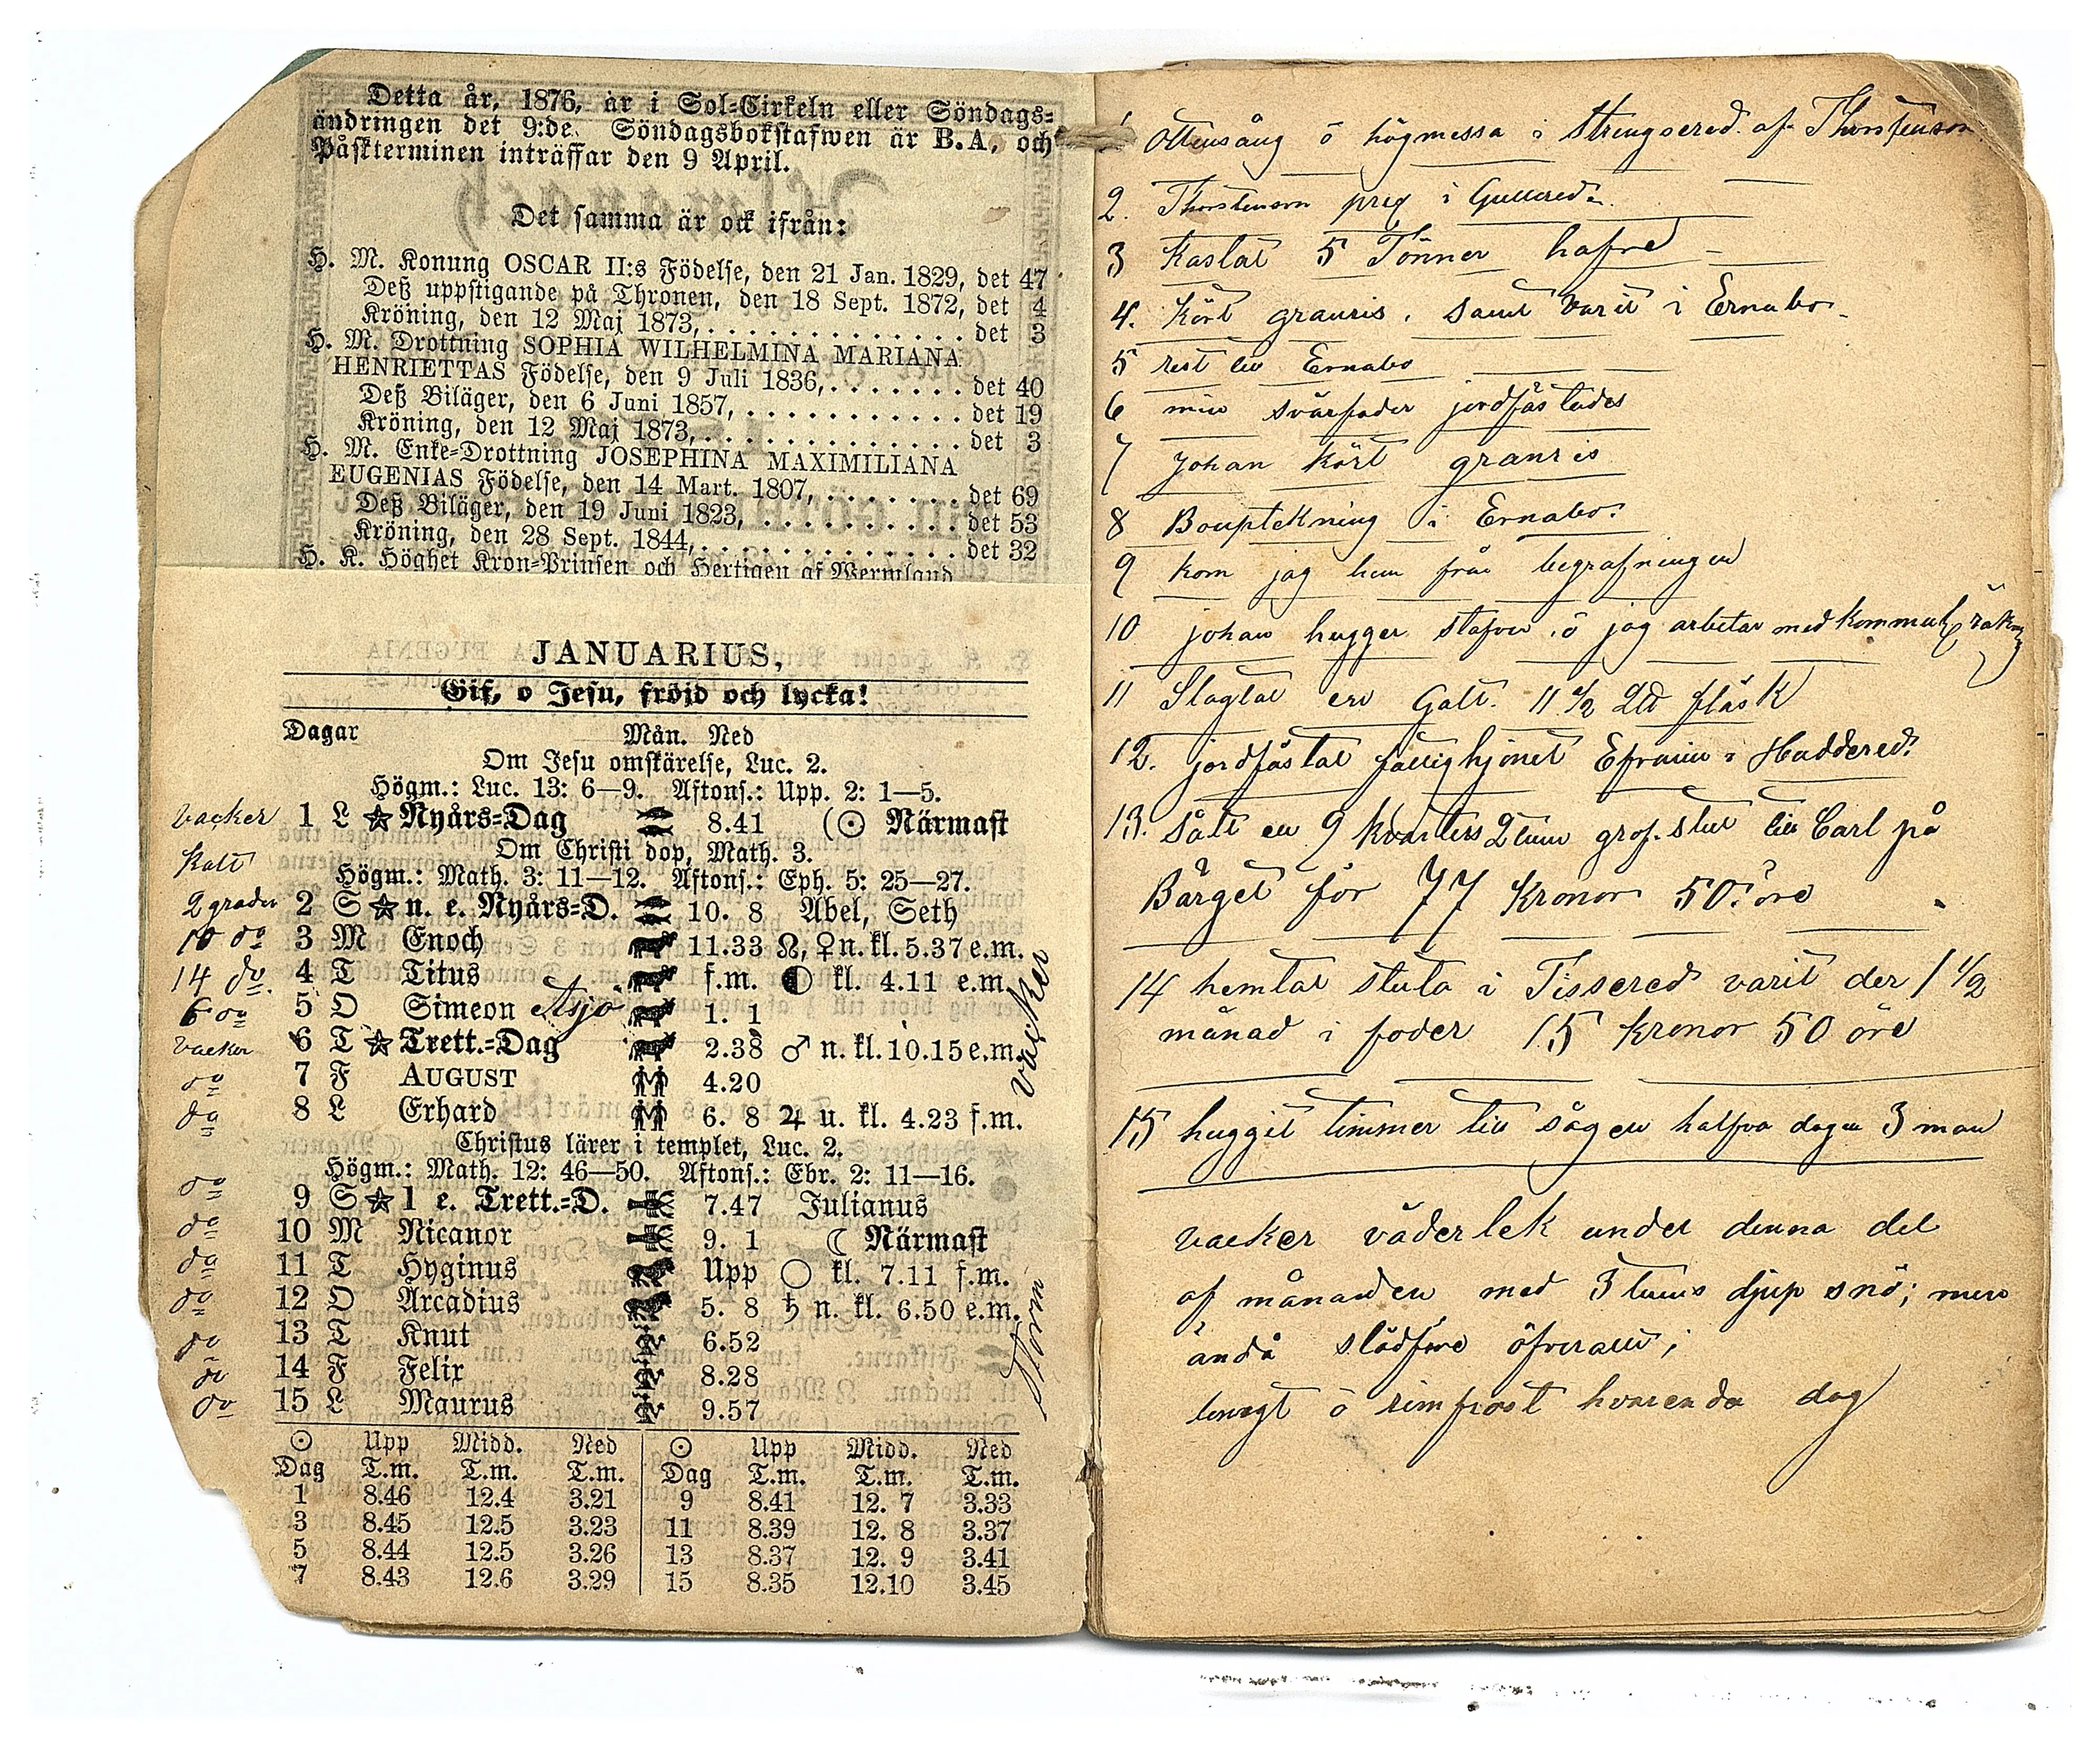 Detta år, 1876, är i Sol=Cirkeln eller Söndags=
ändringen det 9:de. Söndagsbokstafwen är B.A, och
Påskterminen inträffar den 9 April.
Det samma är ock ifrån:
H. M. Konung OSCAR II:s Födelse, den 21 Jan. 1829, det 47
Deß uppstigande på Thronen, den 18 Sept. 1872, det 4
Kröning, den 12 Maj 1873, . . . . . . . . . . . . . . det 3
H. M. Drottning SOPHIA WILHELMINA MARIANA
HENRIETTAS Födelse, den 9 Juli 1836, . . . . . . . det 40
Deß Biläger, den 6 Juni 1857, . . . . . . . . . . . . det 19
Kröning, den 12 Maj 1873, . . . . . . . . . . . . . . det 3
H. M. Enke=Drottning JOSEPHINA MAXIMILIANA
EUGENIAS Födelse, den 14 Mart. 1807, . . . . . . . det 69
Deß Biläger, den 19 Juni 1823, . . . . . . . . . . . det 53
Kröning, den 28 Sept. 1844, . . . . . . . . . . . . . det 32
H. K. Höghet Kron=Prinsen och Hertigen af Wermland
JANUARIUS,
Gif, o Jesu, fröjd och lycka!
Dagar Mån. Ned
Om Jesu omskärelse, Luc. 2.
Högm.: Luc. 13: 6—9. Aftons.: Upp. 2: 1—5.
vacker 1 L ☆ Nyårs=Dag 8.41 (☉ Närmast
Om Christi dop, Math. 3.
kalt
Högm.: Math. 3: 11—12. Aftons.: Eph. 5: 25—27.
2 grader 2 S ☆ n. e. Nyårs=D. 10. 8 Abel, Seth
10 do 3 M Enoch 11.33 ☊, ♀ n. kl. 5.37 e.m.
14 do 4 T Titus f.m. ◐ kl. 4.11 e.m.
6 do 5 O Simeon 1. 1
vacker 6 T ☆ Trett.=Dag 2.38 ♂ n. kl. 10.15 e.m.
do 7 F AUGUST 4.20
do 8 L Erhard 6. 8 ♃ u. kl. 4.23 f.m.
vacker
Christus lärer i templet, Luc. 2.
Högm.: Math. 12: 46—50. Aftons.: Ebr. 2: 11—16.
do 9 S ☆ 1 e. Trett.=D. 7.47 Julianus
do 10 M Nicanor 9. 1 ☾ Närmast
do 11 T Hyginus Upp ○ kl. 7.11 f.m.
do 12 O Arcadius 5. 8 ♄ n. kl. 6.50 e.m.
do 13 T Knut 6.52
do 14 F Felix 8.28
do 15 L Maurus 9.57
Storm
☉ Upp Midd. Ned ☉ Upp Midd. Ned
Dag T.m. T.m. T.m. Dag T.m. T.m. T.m.
1 8.46 12.4 3.21 9 8.41 12. 7 3.33
3 8.45 12.5 3.23 11 8.39 12. 8 3.37
5 8.44 12.5 3.26 13 8.37 12. 9 3.41
7 8.43 12.6 3.29 15 8.35 12.10 3.45
1 Ottusång ö högmessa i Strengsered. af Thorstenson
2. Thorstenson pred i Gullered.
3 Kastat 5 Tönner hafre
4. Kört granris. samt varit i Ernabo
5 rest till Ernabo
6 min svärfader jordfästades
7 Johan kört granris
8 Bouptekning i Ernabo.
9 kom jag hem från begrafningen
10 johan hugger stafver ö jag arbetar med kommunal räkn
11 Slagtat en Galt. 11 1/2 Ltt fläsk
12. jordfästat fattighjonet Efraim i Haddered.
13. Sålt en 9 kvarters 2 tum grof. stut till Carl på
Bärget för 77 kronor 50 öre
14 hemtat stuta i Tissered varit der 1 1/2
månad i foder 15 kronor 50 öre
15 huggit timmer till sågen halfva dagen 3 man
vacker väderlek under denna del
af månaden med 3 tums djup snö; men
ändå slädföre öfverallt;
lungt ö rimfrost hvarenda dag